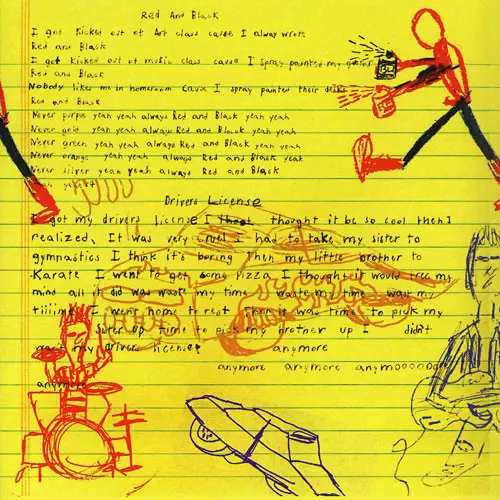 Red And Black
I got Kicked out of Art class cause I alway wrote
Red and Black
I got Kicked out of music class cause I spray painted my
Red and Black
Nobody likes me in homeroom cause I spray painted their desks
Red and Black
Never purple yeah yeah always Red and Black yeah yeah
Never gold yeah yeah always Red and Black yeah yeah
Never green yeah yeah always Red and Black yeah yeah
Never orange yeah yeah always Red and Black yeah
Never silver yeah yeah always Red and Black
Drivers License
I got my drivers license I thought it be so cool then I
realized, It was very cruel I had to take my sister to
gymnastics I think it's boring Then my little brother to
Karate I went to get some Pizza I thought it would free my
mind all it did was waste my time I waste my time wast my
tiiiime I went home to rest Then it was time to pick my
sister up time to pick my brother up I didn't
my drivers license anymore
anymore anymore anymoooooore
anymore